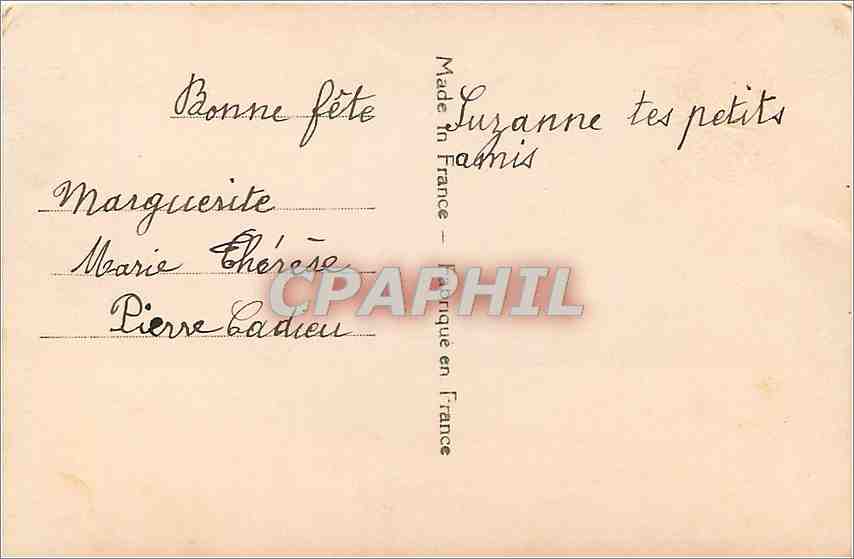 Bonne fête Suzanne tes petits
amis
Marguerite
Marie Thérèse
Pierre Cadieu
Made in France - Fabriqué en France
CPAPHIL